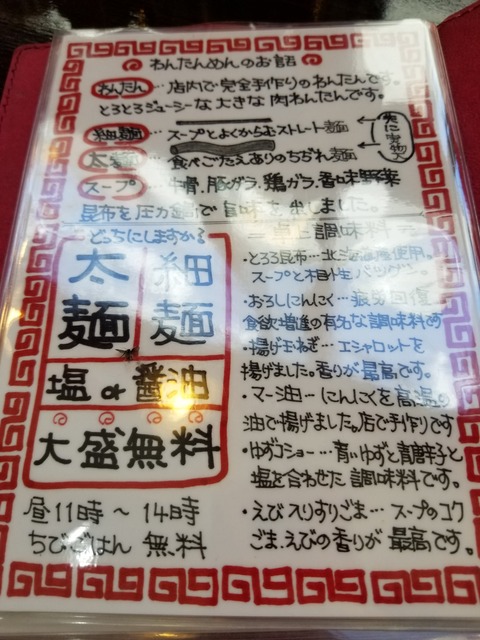 わんたんめんのお話
わんたん…店内で完全手作りのわんたんです。
とろとろジューシーな大きな肉わんたんです。
細麺…スープとよくからむストレート麺
太麺…食べごたえありのちぢれ麺
スープ…牛骨、豚ガラ、鶏ガラ、香味野菜
昆布を圧力鍋で旨味を出しました。
どっちにしますか?
太麺
細麺
塩 or 醤油
大盛無料
昼11時～14時
ちびごはん 無料
卓上調味料
・とろろ昆布…北海道産使用。
スープと相性バツグン。
・おろしにんにく…疲労回復
食欲増進の有名な調味料です
・揚げ玉ねぎ…エシャロットを
揚げました。香りが最高です。
・マー油…にんにくを高温の
油で揚げました。店で手作りです
・ゆずコショー…青いゆずと青唐辛子と
塩を合わせた調味料です。
・えび入りすりごま…スープのコク
ごま、えびの香りが最高です。